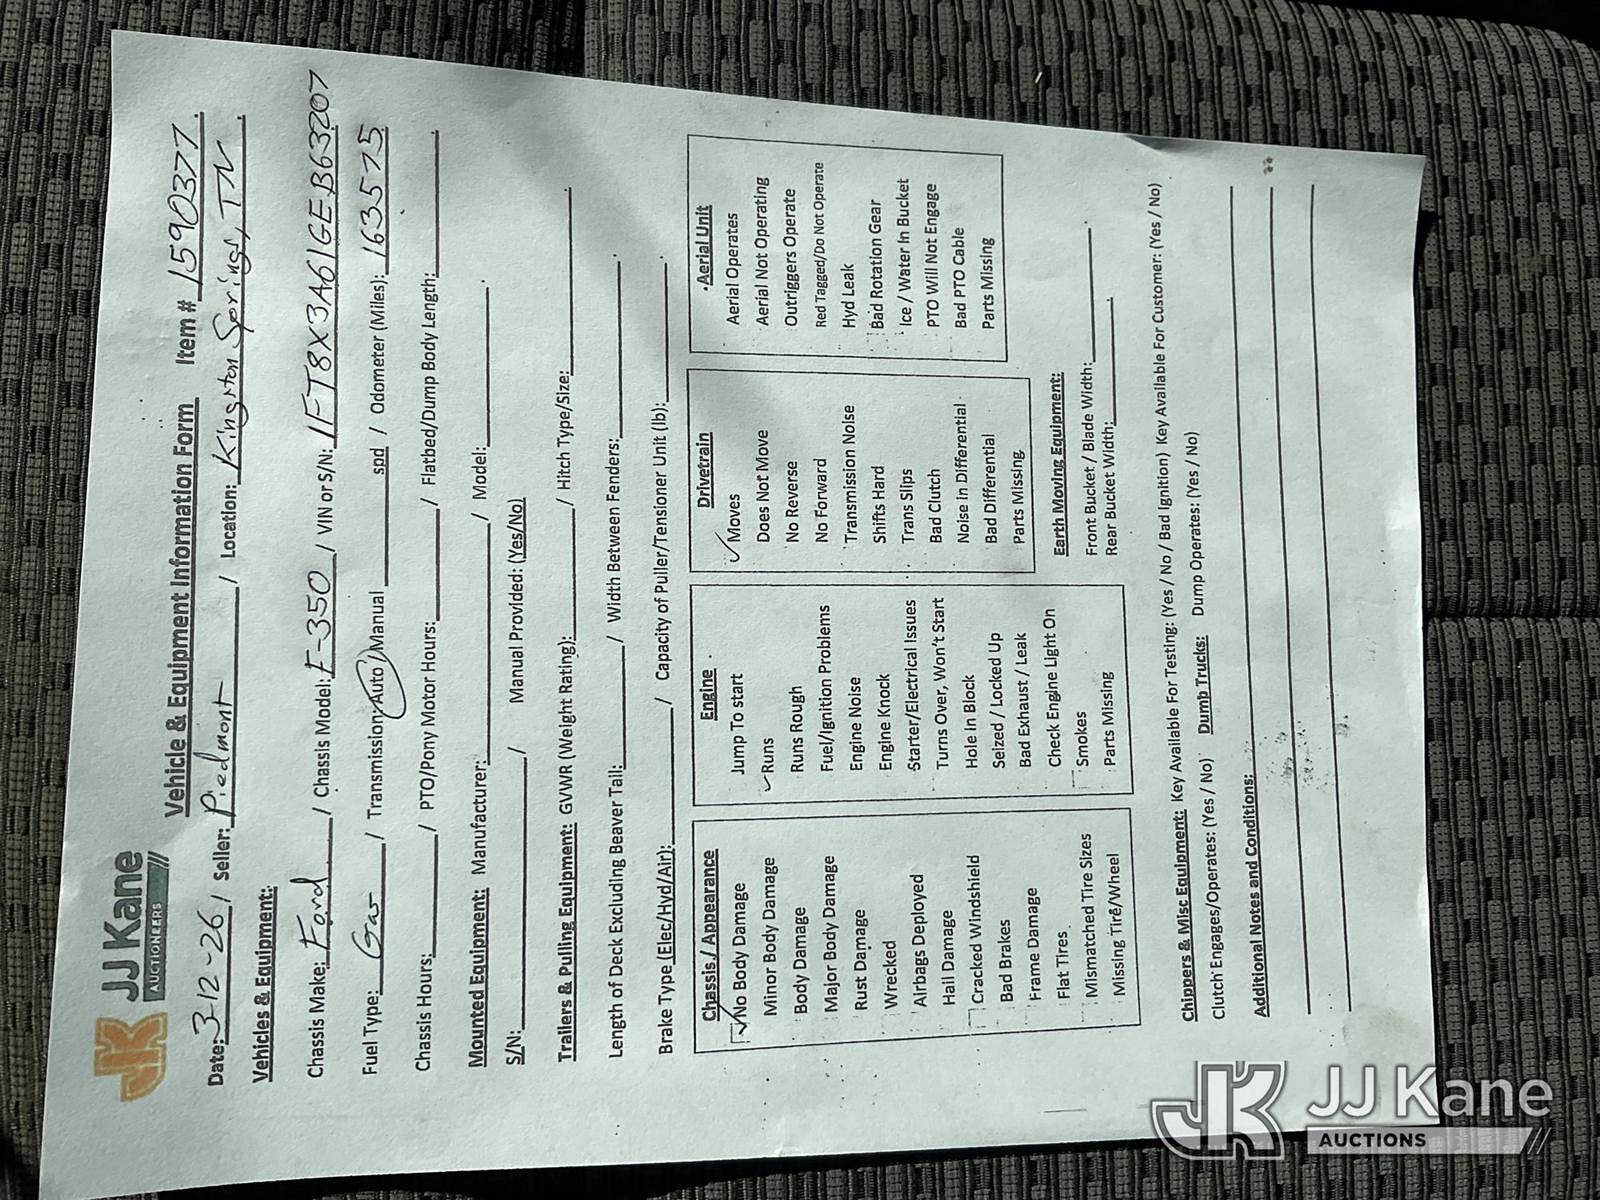 JJ Kane
AUCTIONEERS
Vehicle & Equipment Information Form Item # 1590377
Date: 3-12-26 / Seller: Piedmont / Location: Kingston Springs, TN
Vehicles & Equipment:
Chassis Make: Ford / Chassis Model: F-350 / VIN or S/N: 1FT8X3A61GEB63207
Fuel Type: Gas / Transmission: Auto / Manual spd / Odometer (Miles): 163575
Chassis Hours: / PTO/Pony Motor Hours: / Flatbed/Dump Body Length:
Mounted Equipment: Manufacturer: / Model:
S/N: / Manual Provided: (Yes/No)
Trailers & Pulling Equipment: GVWR (Weight Rating): / Hitch Type/Size:
Length of Deck Excluding Beaver Tail: / Width Between Fenders:
Brake Type (Elec/Hyd/Air): / Capacity of Puller/Tensioner Unit (lb):
Chassis / Appearance
✓ No Body Damage
Minor Body Damage
Body Damage
Major Body Damage
Rust Damage
Wrecked
Airbags Deployed
Hail Damage
Cracked Windshield
Bad Brakes
Frame Damage
Flat Tires
Mismatched Tire Sizes
Missing Tire/Wheel
Engine
Jump To start
✓ Runs
Runs Rough
Fuel/Ignition Problems
Engine Noise
Engine Knock
Starter/Electrical Issues
Turns Over, Won't Start
Hole In Block
Seized / Locked Up
Bad Exhaust / Leak
Check Engine Light On
Smokes
Parts Missing
Drivetrain
✓ Moves
Does Not Move
No Reverse
No Forward
Transmission Noise
Shifts Hard
Trans Slips
Bad Clutch
Noise In Differential
Bad Differential
Parts Missing
Aerial Unit
Aerial Operates
Aerial Not Operating
Outriggers Operate
Red Tagged/Do Not Operate
Hyd Leak
Bad Rotation Gear
Ice / Water In Bucket
PTO Will Not Engage
Bad PTO Cable
Parts Missing
Earth Moving Equipment:
Front Bucket / Blade Width:
Rear Bucket Width:
Chippers & Misc Equipment: Key Available For Testing: (Yes / No / Bad Ignition) Key Available For Customer: (Yes / No)
Clutch Engages/Operates: (Yes / No) Dump Trucks: Dump Operates: (Yes / No)
Additional Notes and Conditions:
JJ Kane
AUCTIONS